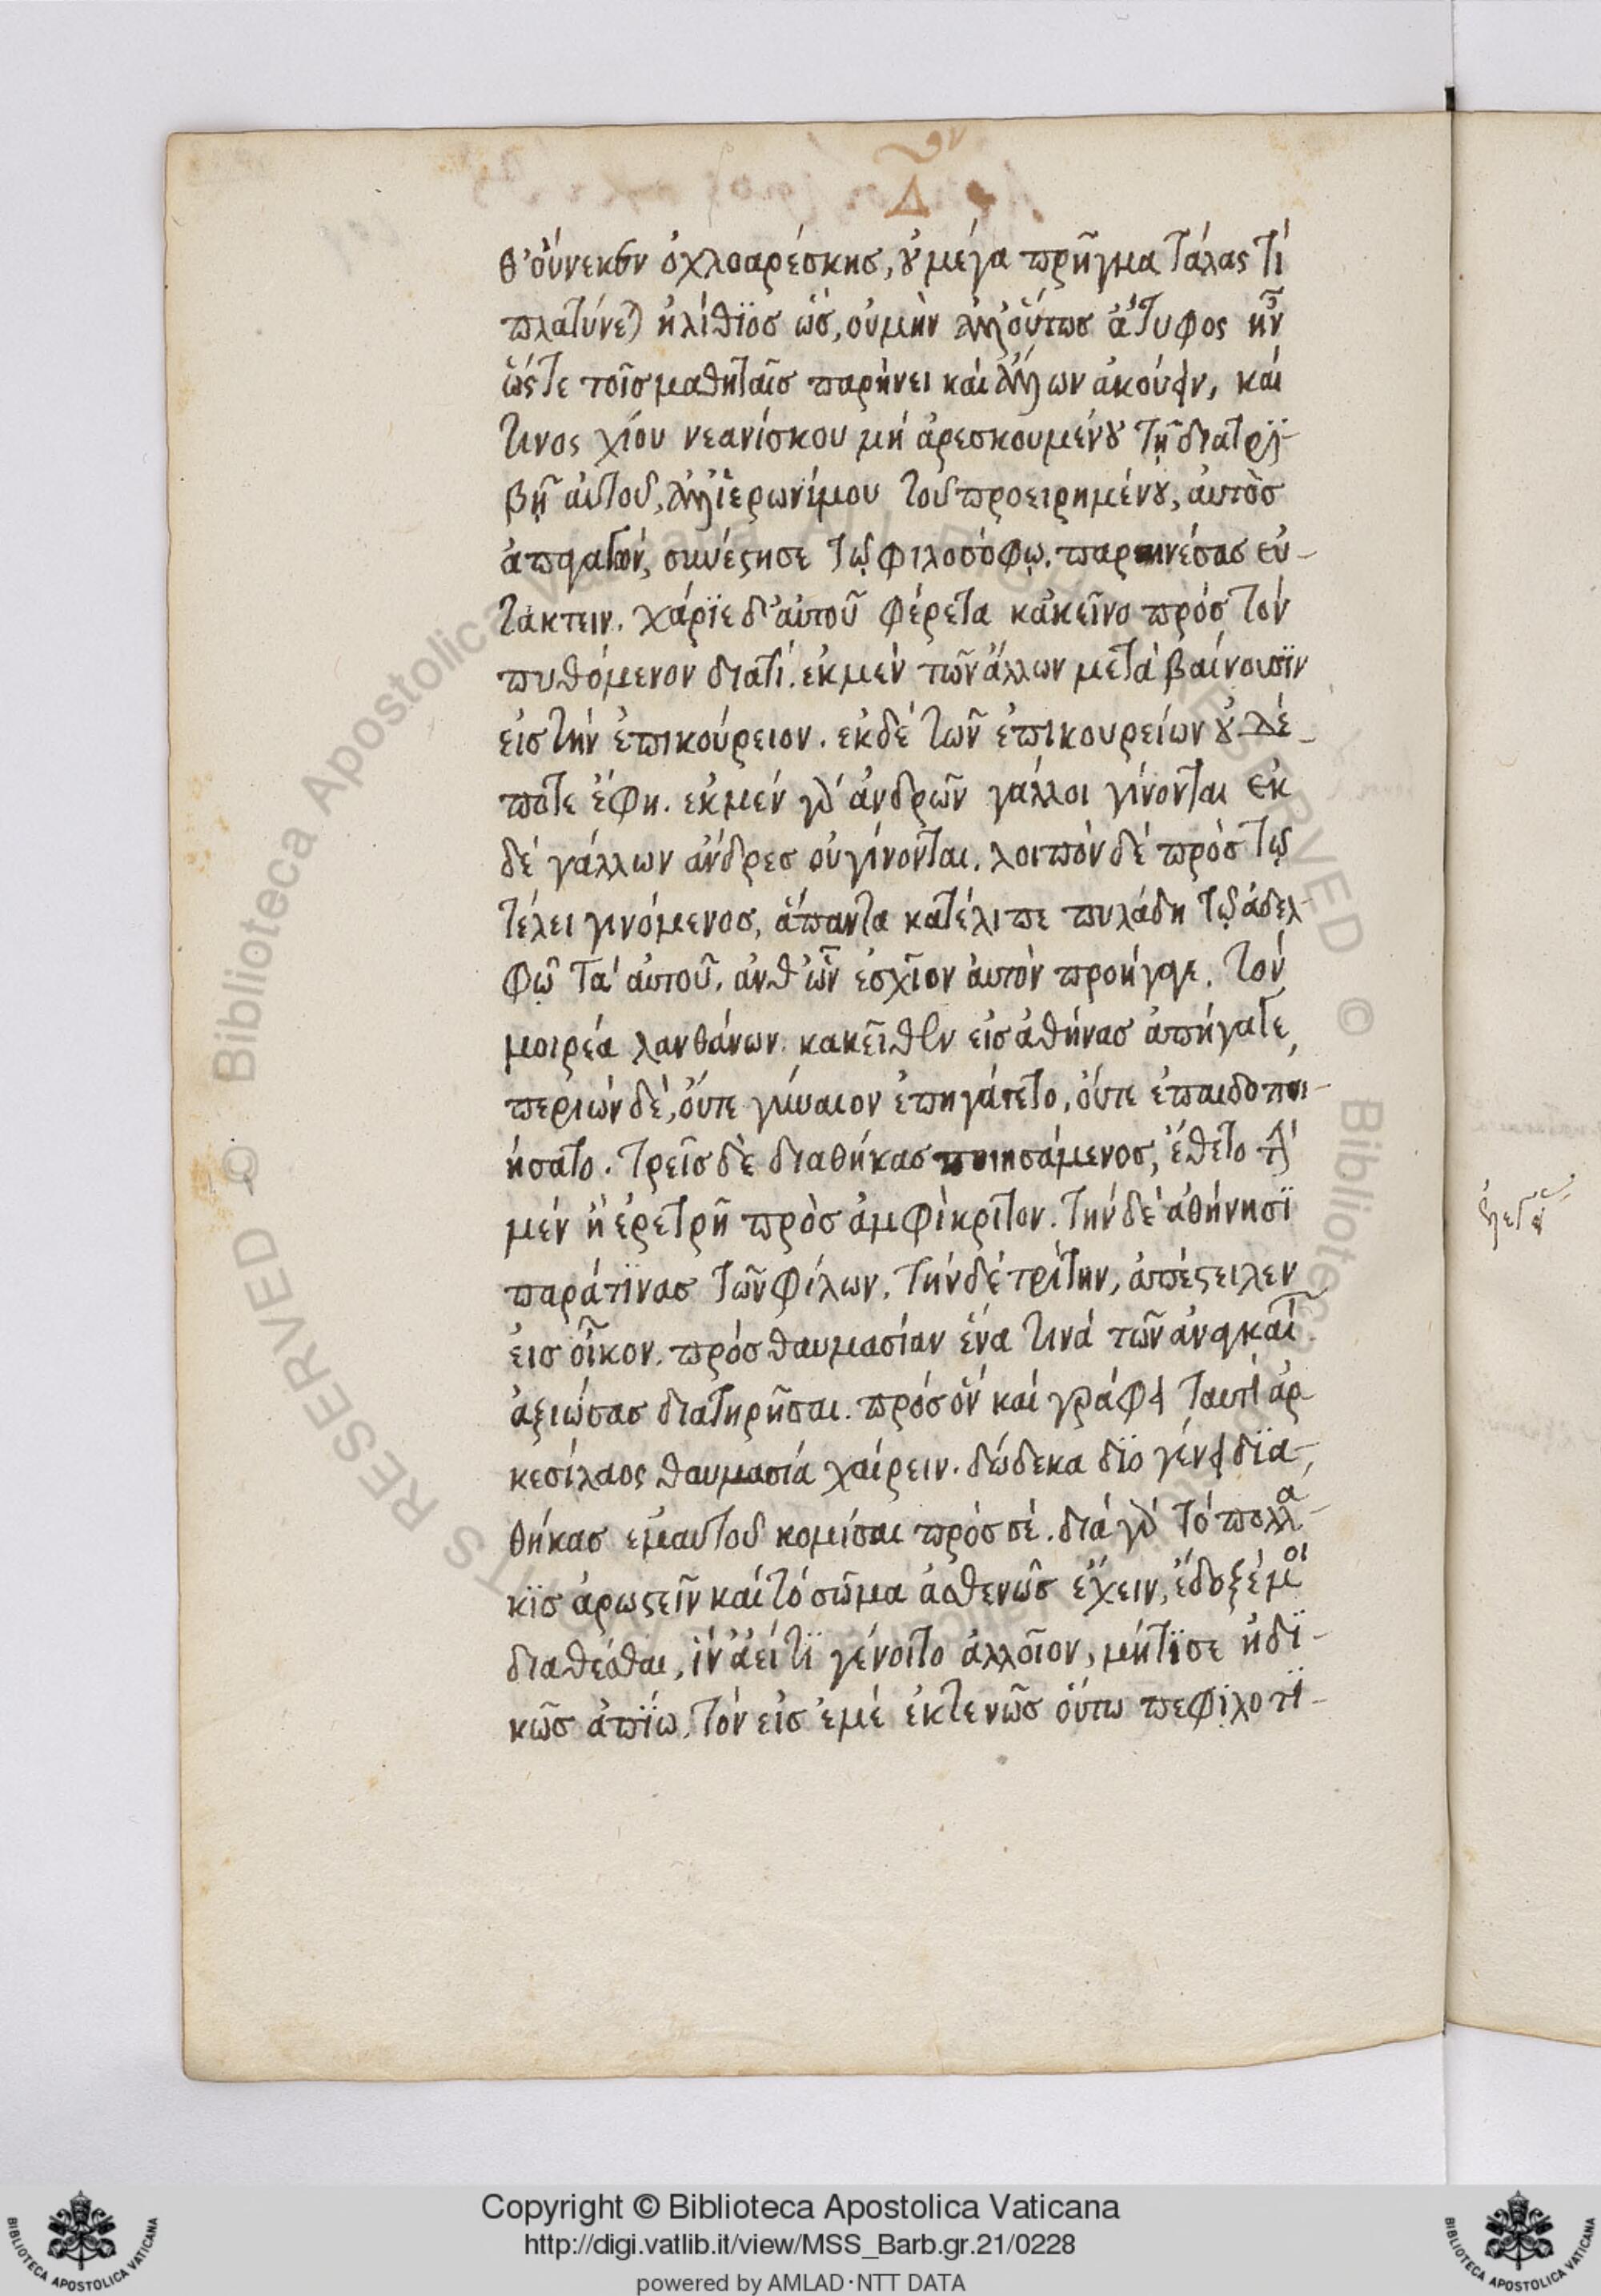 Δ
θ' οὕνεκεν ὀχλοαρέσκης, οὐ μέγα πρῆγμα τάλας τί
πλατύνεαι ἠλίθϊος ὥς, οὐ μὴν ἀλλ' οὕτως ἄτυφος ἦν
ὥστε τοῖς μαθηταῖς παρῄνει καὶ ἄλλων ἀκούειν, καί
τινος χίου νεανίσκου μὴ ἀρεσκουμένου τῇ διατρϊ-
βῇ αὐτοῦ, ἀλλ' ἱερωνίμου τοῦ προειρημένου, αὐτὸς
ἀπαγαγών, συνέστησε τῷ φιλοσόφῳ. παραινέσας εὐ-
τακτειν. χάρϊε δ' αὐτοῦ φέρεται κἀκεῖνο πρὸς τὸν
πυθόμενον διατί. ἐκ μὲν τῶν ἄλλων μεταβαίνουσϊν
εἰς τὴν ἐπικούρειον. ἐκ δὲ τῶν ἐπικουρείων οὐδέ-
ποτε ἔφη. ἐκ μὲν γὰρ ἀνδρῶν γάλλοι γίνονται ἐκ
δὲ γάλλων ἄνδρες οὐ γίνονται. λοιπὸν δὲ πρὸς τῷ
τέλει γινόμενος, ἅπαντα κατέλιπε πυλάδη τῷ ἀδελ-
φῷ τὰ αὐτοῦ. ἀνθ' ὧν ἐς χῖον αὐτὸν προήγαγε. τὸν
μοιρέα λανθάνων. κακεῖθεν εἰς ἀθήνας ἀπήγαγε,
περιὼν δὲ, οὔτε γύναιον ἐπηγάγετο, οὔτε ἐπαιδοποι-
ήσατο. τρεῖς δὲ διαθήκας ποιησάμενος, ἔθετο τὴν
μὲν ἢ ἐρετρῆ πρὸς ἀμφίκριτον. τὴν δὲ ἀθήνησϊ
παρά τϊνας τῶν φίλων. τὴν δὲ τρίτην, ἀπέστειλεν
εἰς οἶκον. πρὸς θαυμασίαν ἕνα τινὰ τῶν ἀναγκαί
ἀξιώσας διατηρῆσαι. πρὸς ὃν καὶ γράφει ταυτί ἀρ
κεσίλαος θαυμασία χαίρειν. δώδεκα δϊογένει δϊα-
θήκας ἐμαυτοῦ κομίσαι πρὸς σέ. διὰ γὰρ τὸ πολλά
κϊς ἀρωστεῖν καὶ τὸ σῶμα ἀσθενῶς ἔχειν, ἔδοξέ μοι
διαθέσθαι, ἵν' ἀεί τϊ γένοιτο ἀλλοῖον, μή τϊ σε ἠδϊ-
κῶς ἀπϊω. τὸν εἰς ἐμὲ ἐκτενῶς οὕτω πεφϊλοτϊ-
Copyright © Biblioteca Apostolica Vaticana
http://digi.vatlib.it/view/MSS_Barb.gr.21/0228
powered by AMLAD·NTT DATA